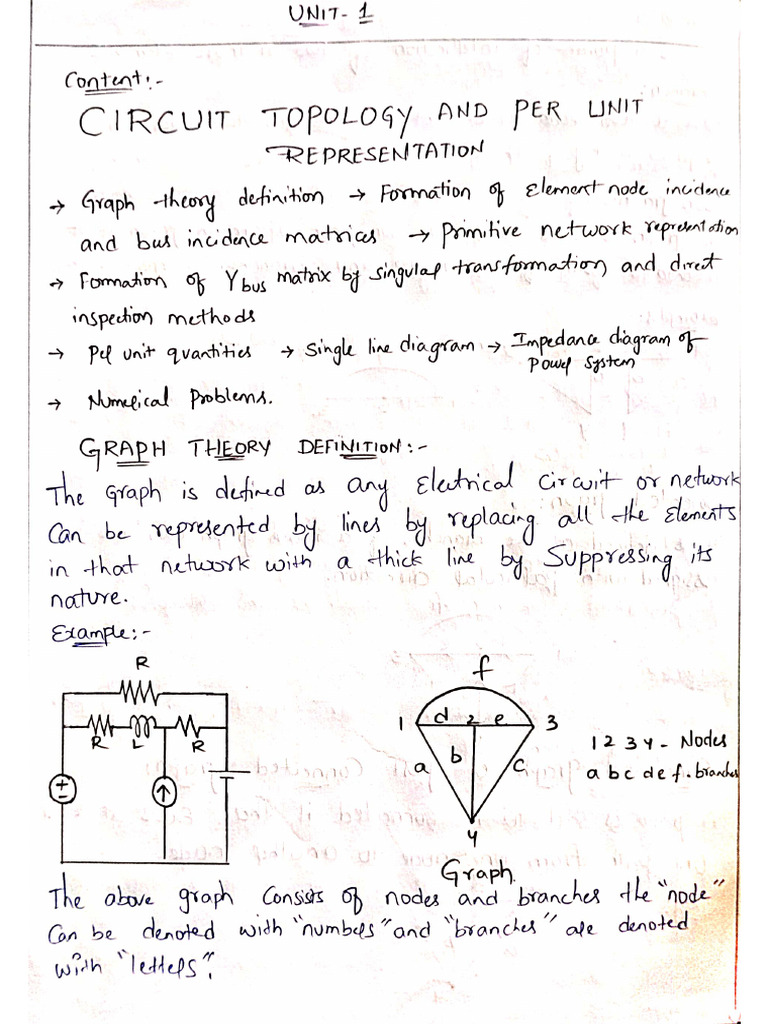 UNIT-1
Content:-
CIRCUIT TOPOLOGY AND PER UNIT
REPRESENTATION
→ Graph theory definition → Formation of Element node incidence
and bus incidence matrices → Primitive network representation
→ Formation of Ybus matrix by singular transformation and direct
inspection methods
→ Per unit quantities → Single line diagram → Impedance diagram of
Power System
→ Numerical Problems.
GRAPH THEORY DEFINITION:-
The Graph is defined as any Electrical Circuit or network
Can be represented by lines by replacing all the Elements
in that network with a thick line by Suppressing its
nature.
Example:-
R
R L R
f
1 d 2 e 3
a b c
4
1 2 3 4 - Nodes
a b c d e f - branches
Graph.
The above graph Consists of nodes and branches the "node"
Can be denoted with "numbers" and "branches" are denoted
with "letters".